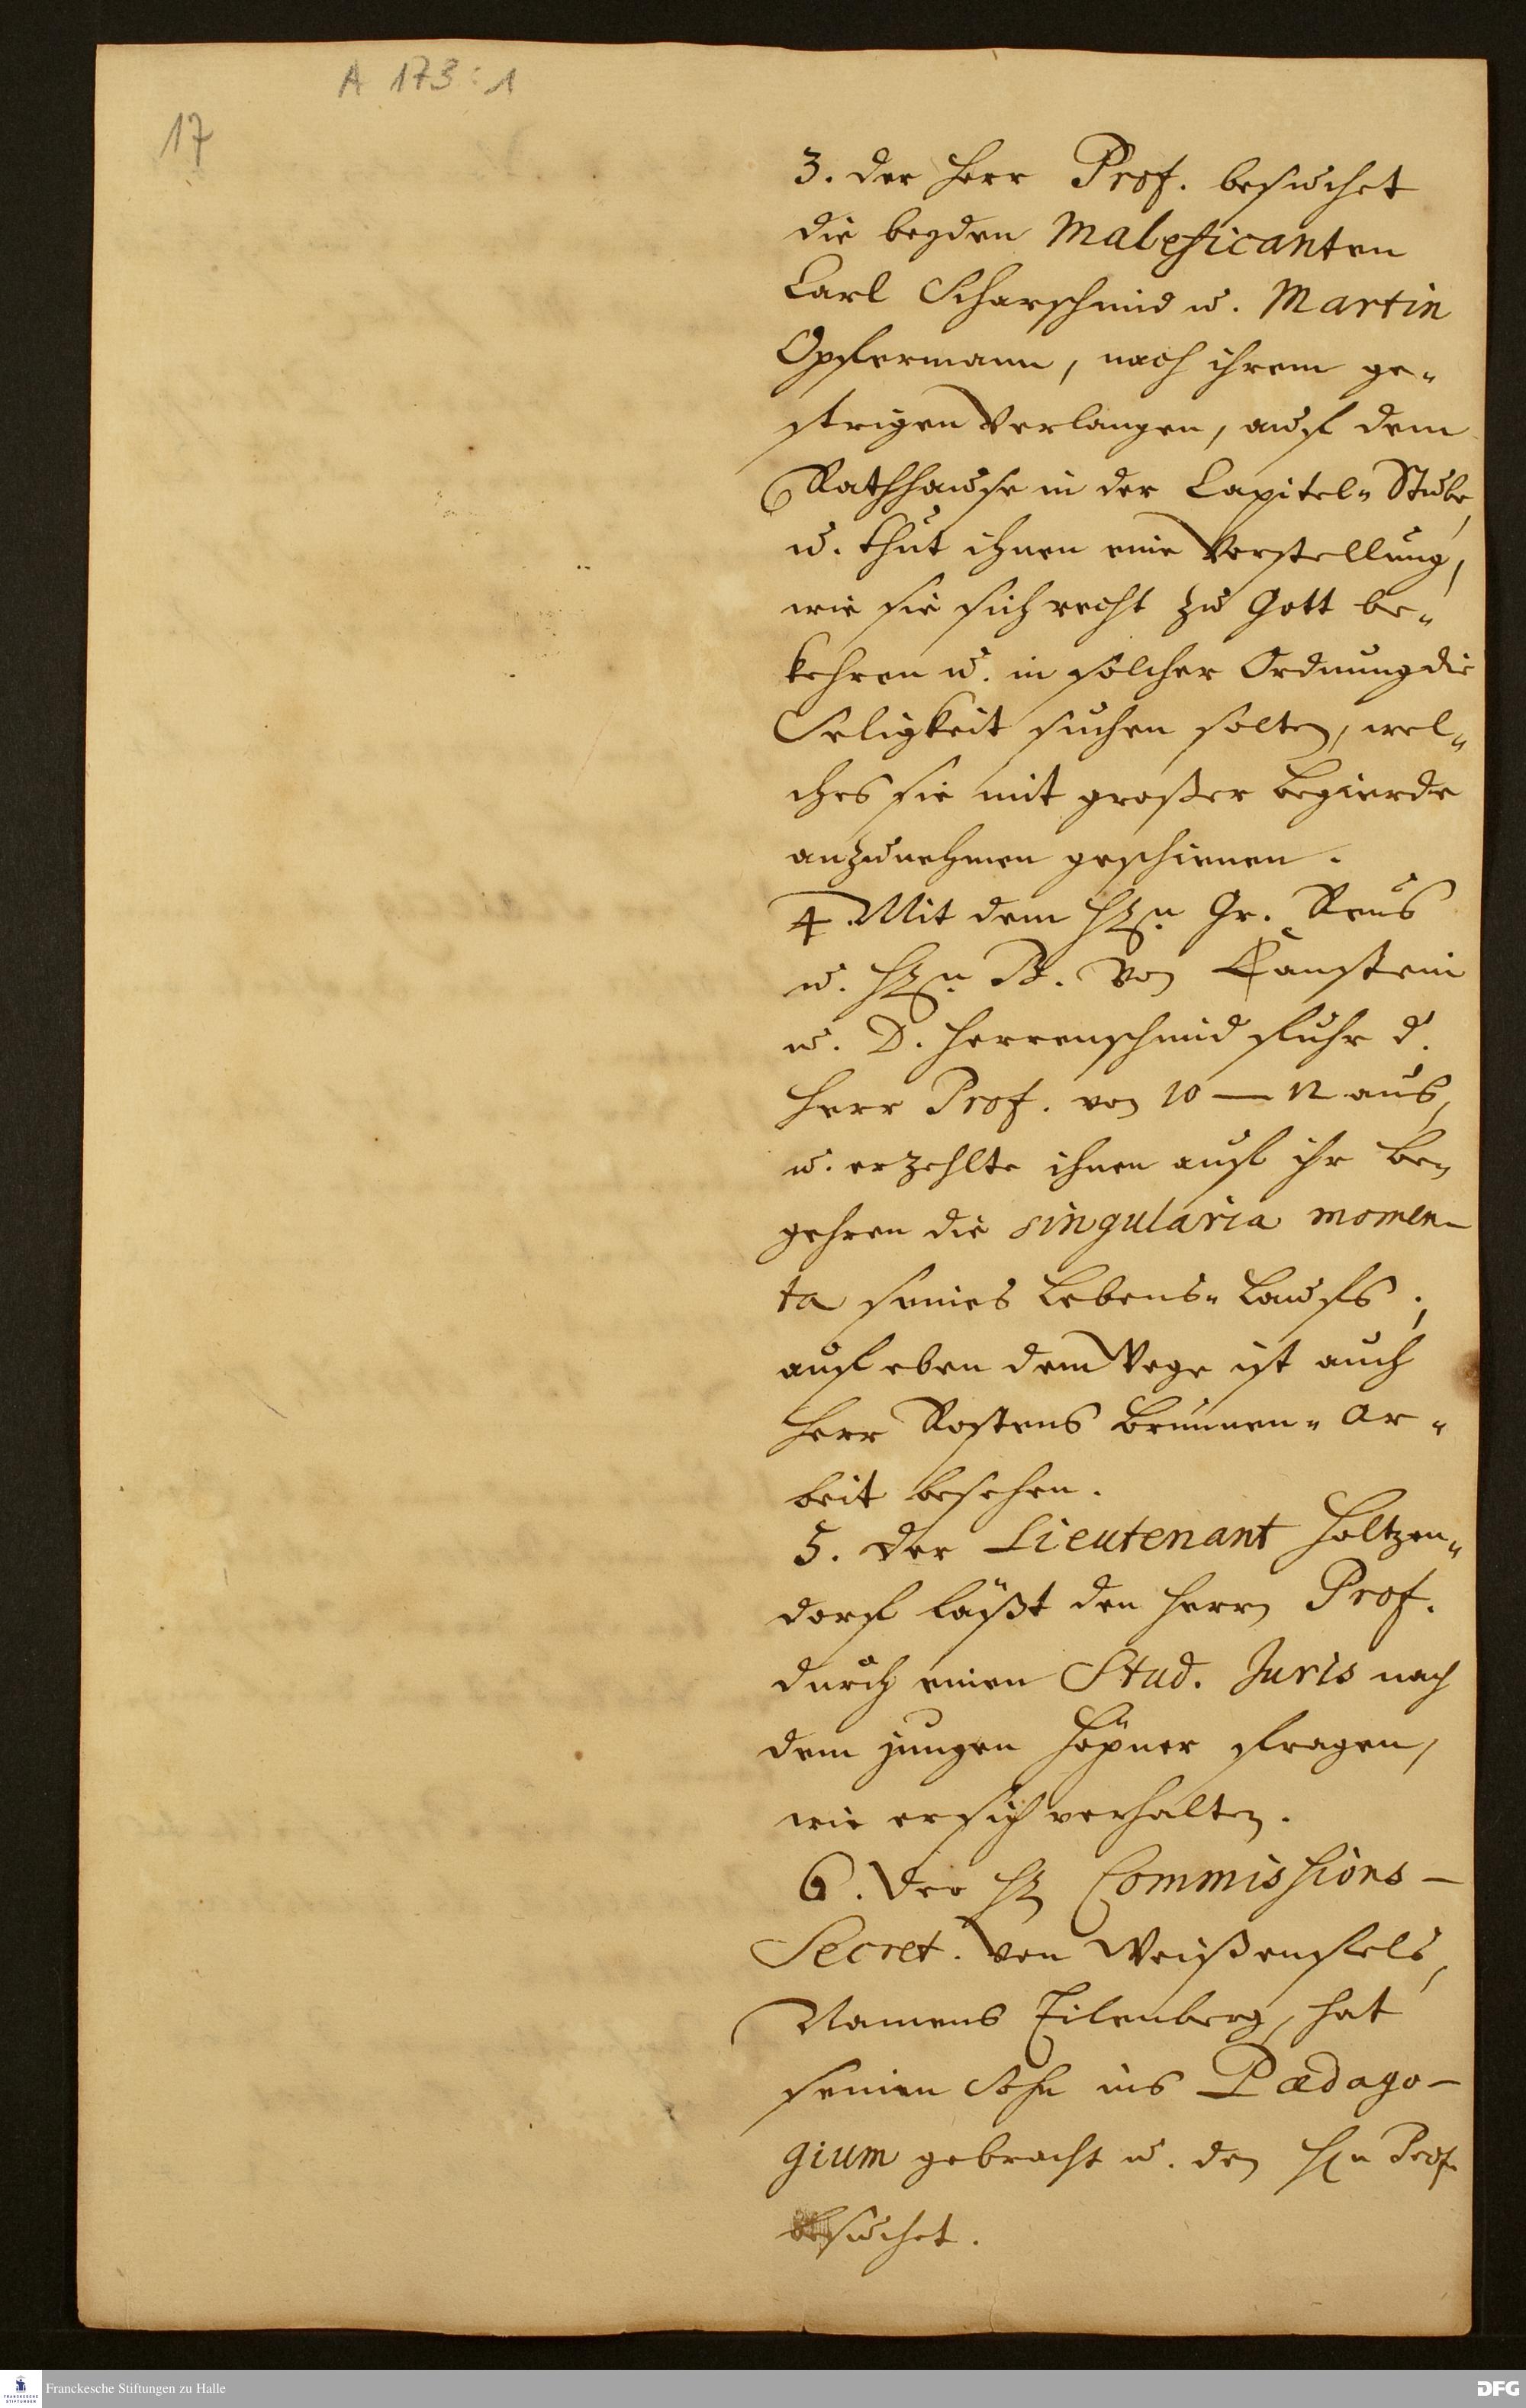 A 173 : 1
17
3. der Herr Prof. besuchet
die beyden Maleficanten
Carl Scharschmid u. Martin
Opfermann, nach ihrem ge-
strigen Verlangen, auf dem
Rathhause in der Capitel-Stube,
u. thut ihnen eine Vorstellung,
wie sie sich recht zu Gott be-
kehren u. in solcher Ordnung die
Seligkeit suchen solten, wel-
ches sie mit großer Begierde
anzunehmen geschienen.
4. Mit dem Hrn. Gr. Reus
u. Hrn. B. von Canstein
u. D. Herrenschmid fuhr d.
Herr Prof. von 10 — 12 aus,
u. erzehlte ihnen auf ihr Be-
gehren die singularia momen-
ta seines Lebens-Laufs;
auf eben dem Wege ist auch
Herr Rostens Brunnen-Ar-
beit besehen.
5. Der Lieutenant Holtzen-
dorf läßt den Herrn Prof.
durch einen Stud. Juris nach
dem jungen Höpner fragen,
wie er sich verhalten.
6. Der Hr. Commissions-
Secret. von Weißenfels,
Namens Eilenberg, hat
seinen Sohn ins Pædago-
gium gebracht u. den Hn Prof.
besuchet.
Franckesche Stiftungen zu Halle
DFG